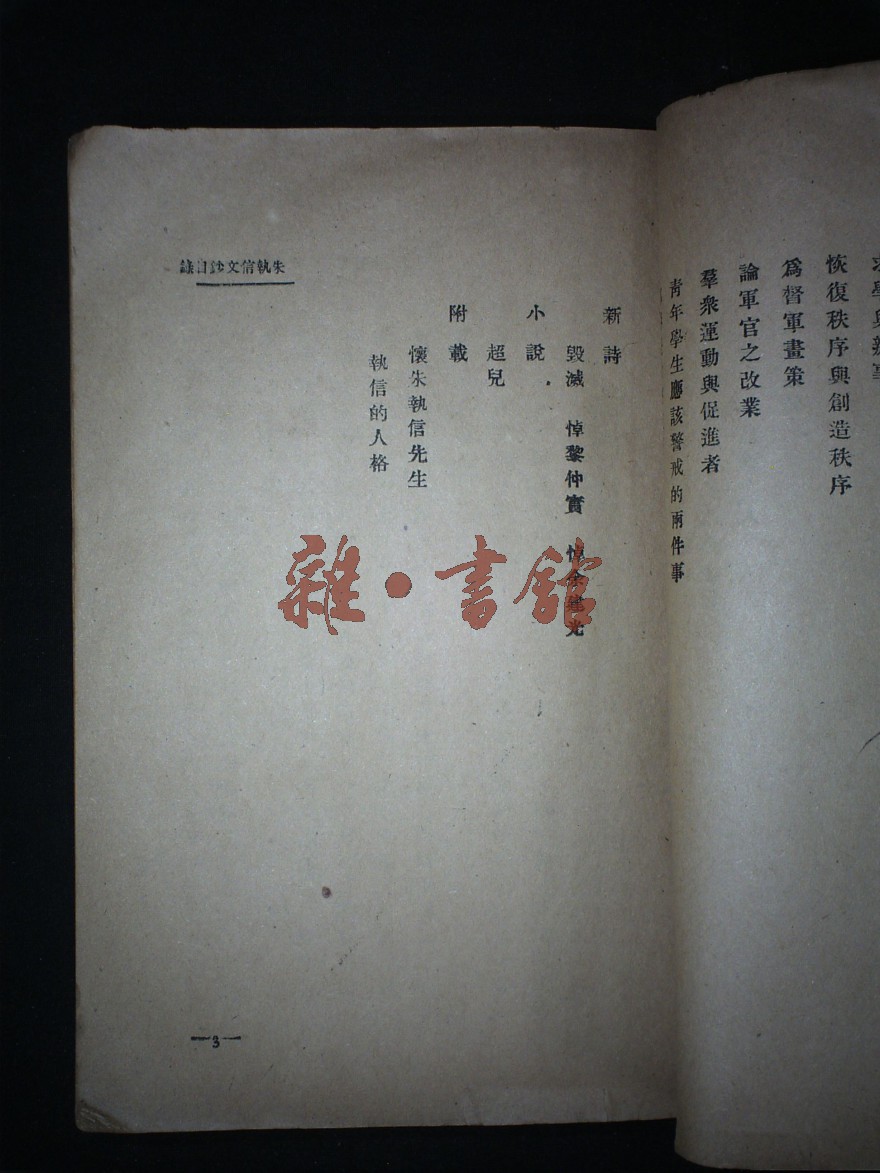 恢復秩序與創造秩序
爲督軍畫策
論軍官之改業
羣衆運動與促進者
青年學生應該警戒的兩件事
朱執信文鈔目錄
新詩
毀滅 悼黎仲實 悼余建光
小說
超兒
附載
懷朱執信先生
執信的人格
雜·書館
—3—